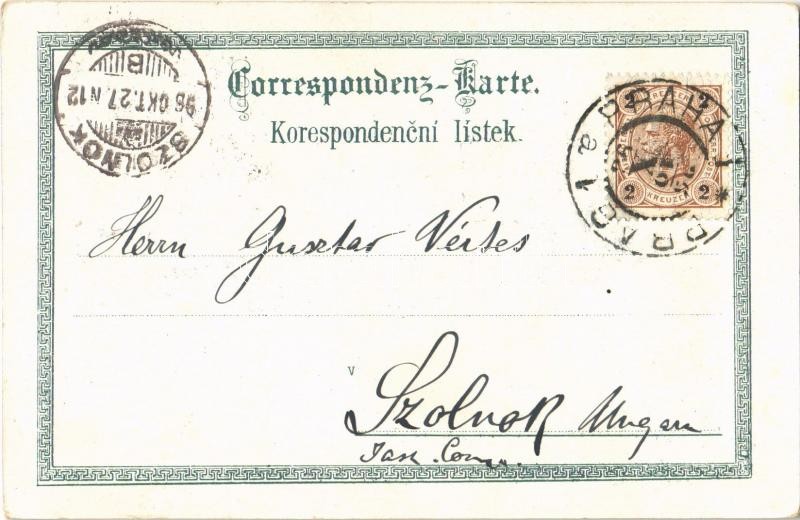 Correspondenz-Karte.
Korespondenční lístek.
SZOLNOK
96 OKT. 27 N 12
B
PRAHA 1
PRAG 1
a
2 2
2 KREUZER 2
Herrn Gusztav Vértes
v
Szolnok Ungarn